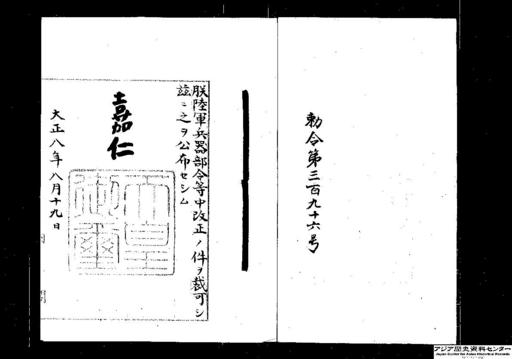 勅令第三百九十六号
朕陸軍兵器部令等中改正ノ件ヲ裁可シ
玆ニ之ヲ公布セシム
嘉仁
天皇
御璽
大正八年八月十九日
アジア歴史資料センター
Japan Center for Asian Historical Records